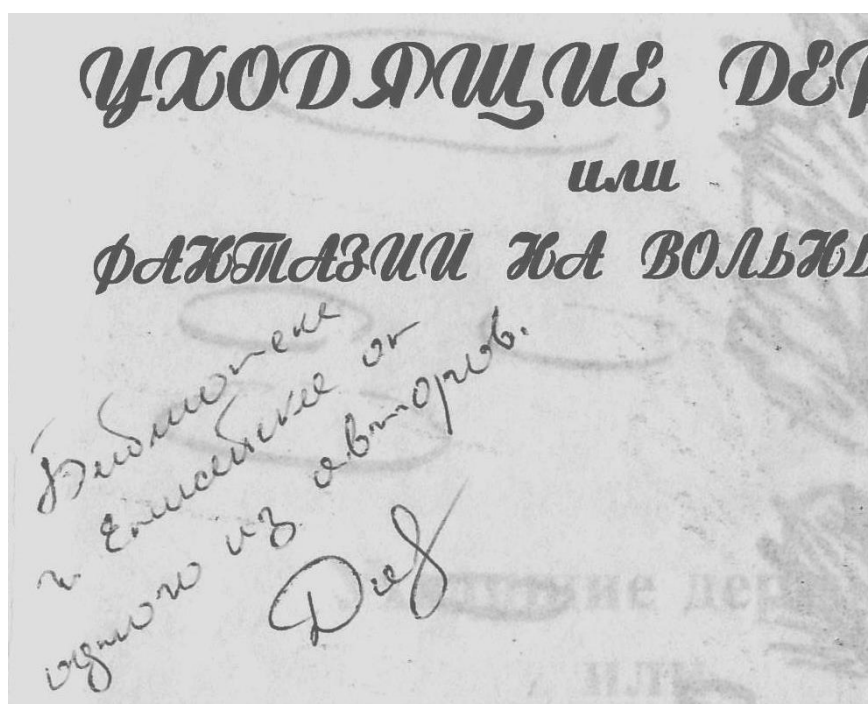 УХОДЯЩИЕ ДЕР
или
ФАНТАЗИИ НА ВОЛЬНЫ
Библиотеке
г. Енисейска от
одного из авторов.
ние дер
или